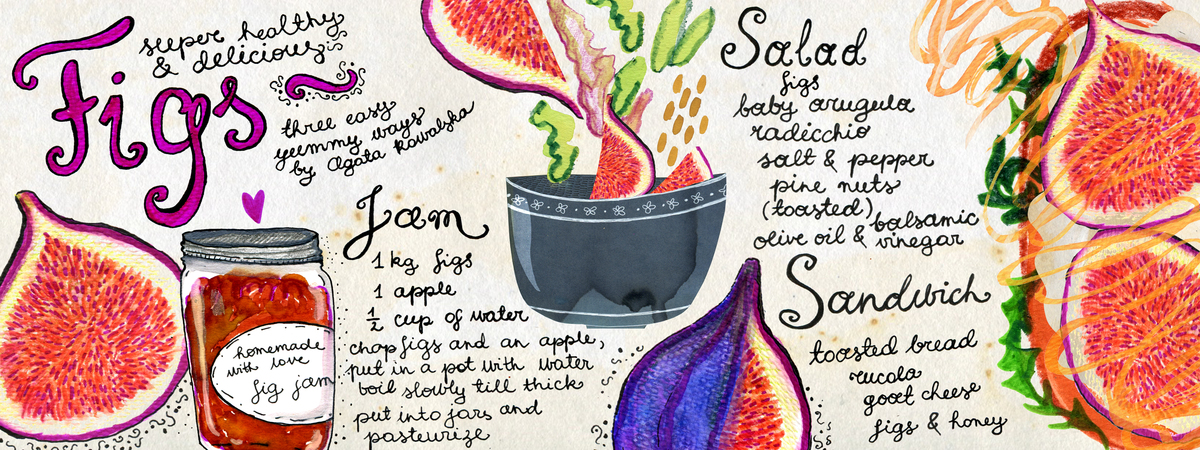 Figs
super healthy
& delicious
three easy
yummy ways
by Agata Kowalska
Jam
1 kg figs
1 apple
1/2 cup of water
chop figs and an apple,
put in a pot with water
boil slowly till thick
put into jars and
pasteurize
homemade
with love
fig jam
Salad
figs
baby arugula
radicchio
salt & pepper
pine nuts
(toasted)
olive oil & balsamic
vinegar
Sandwich
toasted bread
rucola
goat cheese
figs & honey